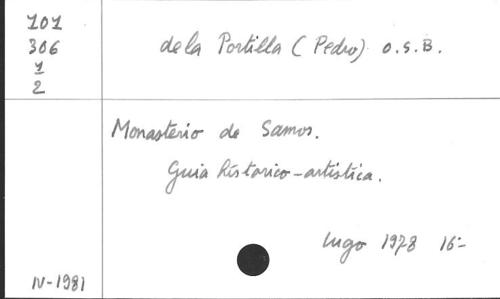 101
306
1
2
de la Portilla (Pedro) O.S.B.
Monasterio de Samos.
Guia historico-artistica.
Lugo 1978 16º
IV-1981